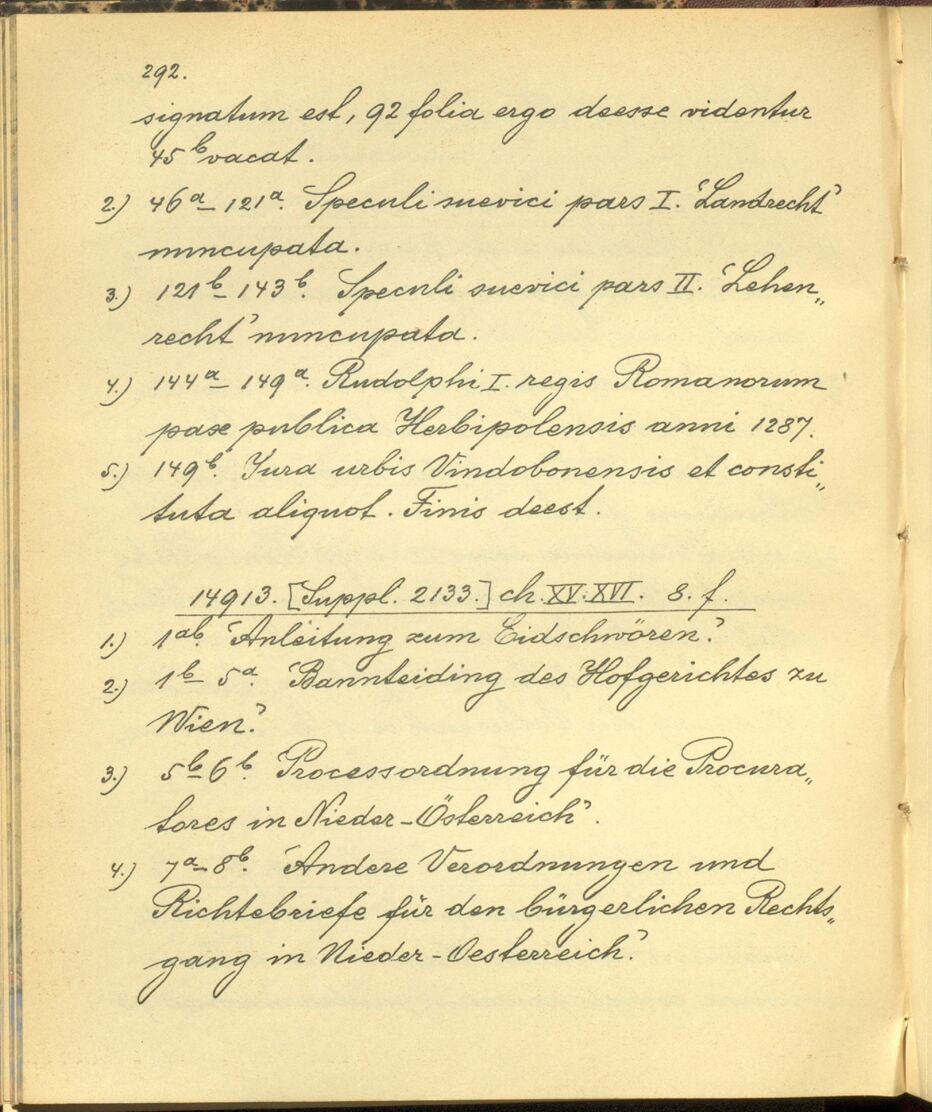 292.
signatum est, 92 folia ergo deesse videntur
45ᵇ vacat.
2.) 46ᵃ–121ᵃ. Speculi suevici pars I. ‘Landrecht’
nuncupata.
3.) 121ᵇ–143ᵇ. Speculi suevici pars II. ‘Lehen„
recht’ nuncupata.
4.) 144ᵃ–149ᵃ. Rudolphi I. regis Romanorum
pax publica Herbipolensis anni 1287.
5.) 149ᵇ. Jura urbis Vindobonensis et consti„
tuta aliquot. Finis deest.
14913. [Suppl. 2133.] ch. XV. XVI. 8. f.
1.) 1ᵃᵇ. ‘Anleitung zum Eidschwören.’
2.) 1ᵇ–5ᵃ. ‘Bannteiding des Hofgerichtes zu
Wien.’
3.) 5ᵇ–6ᵇ. ‘Processordnung für die Procura„
tores in Nieder-Österreich’.
4.) 7ᵃ–8ᵇ. ‘Andere Verordnungen und
Richtebriefe für den bürgerlichen Rechts„
gang in Nieder-Oesterreich.’